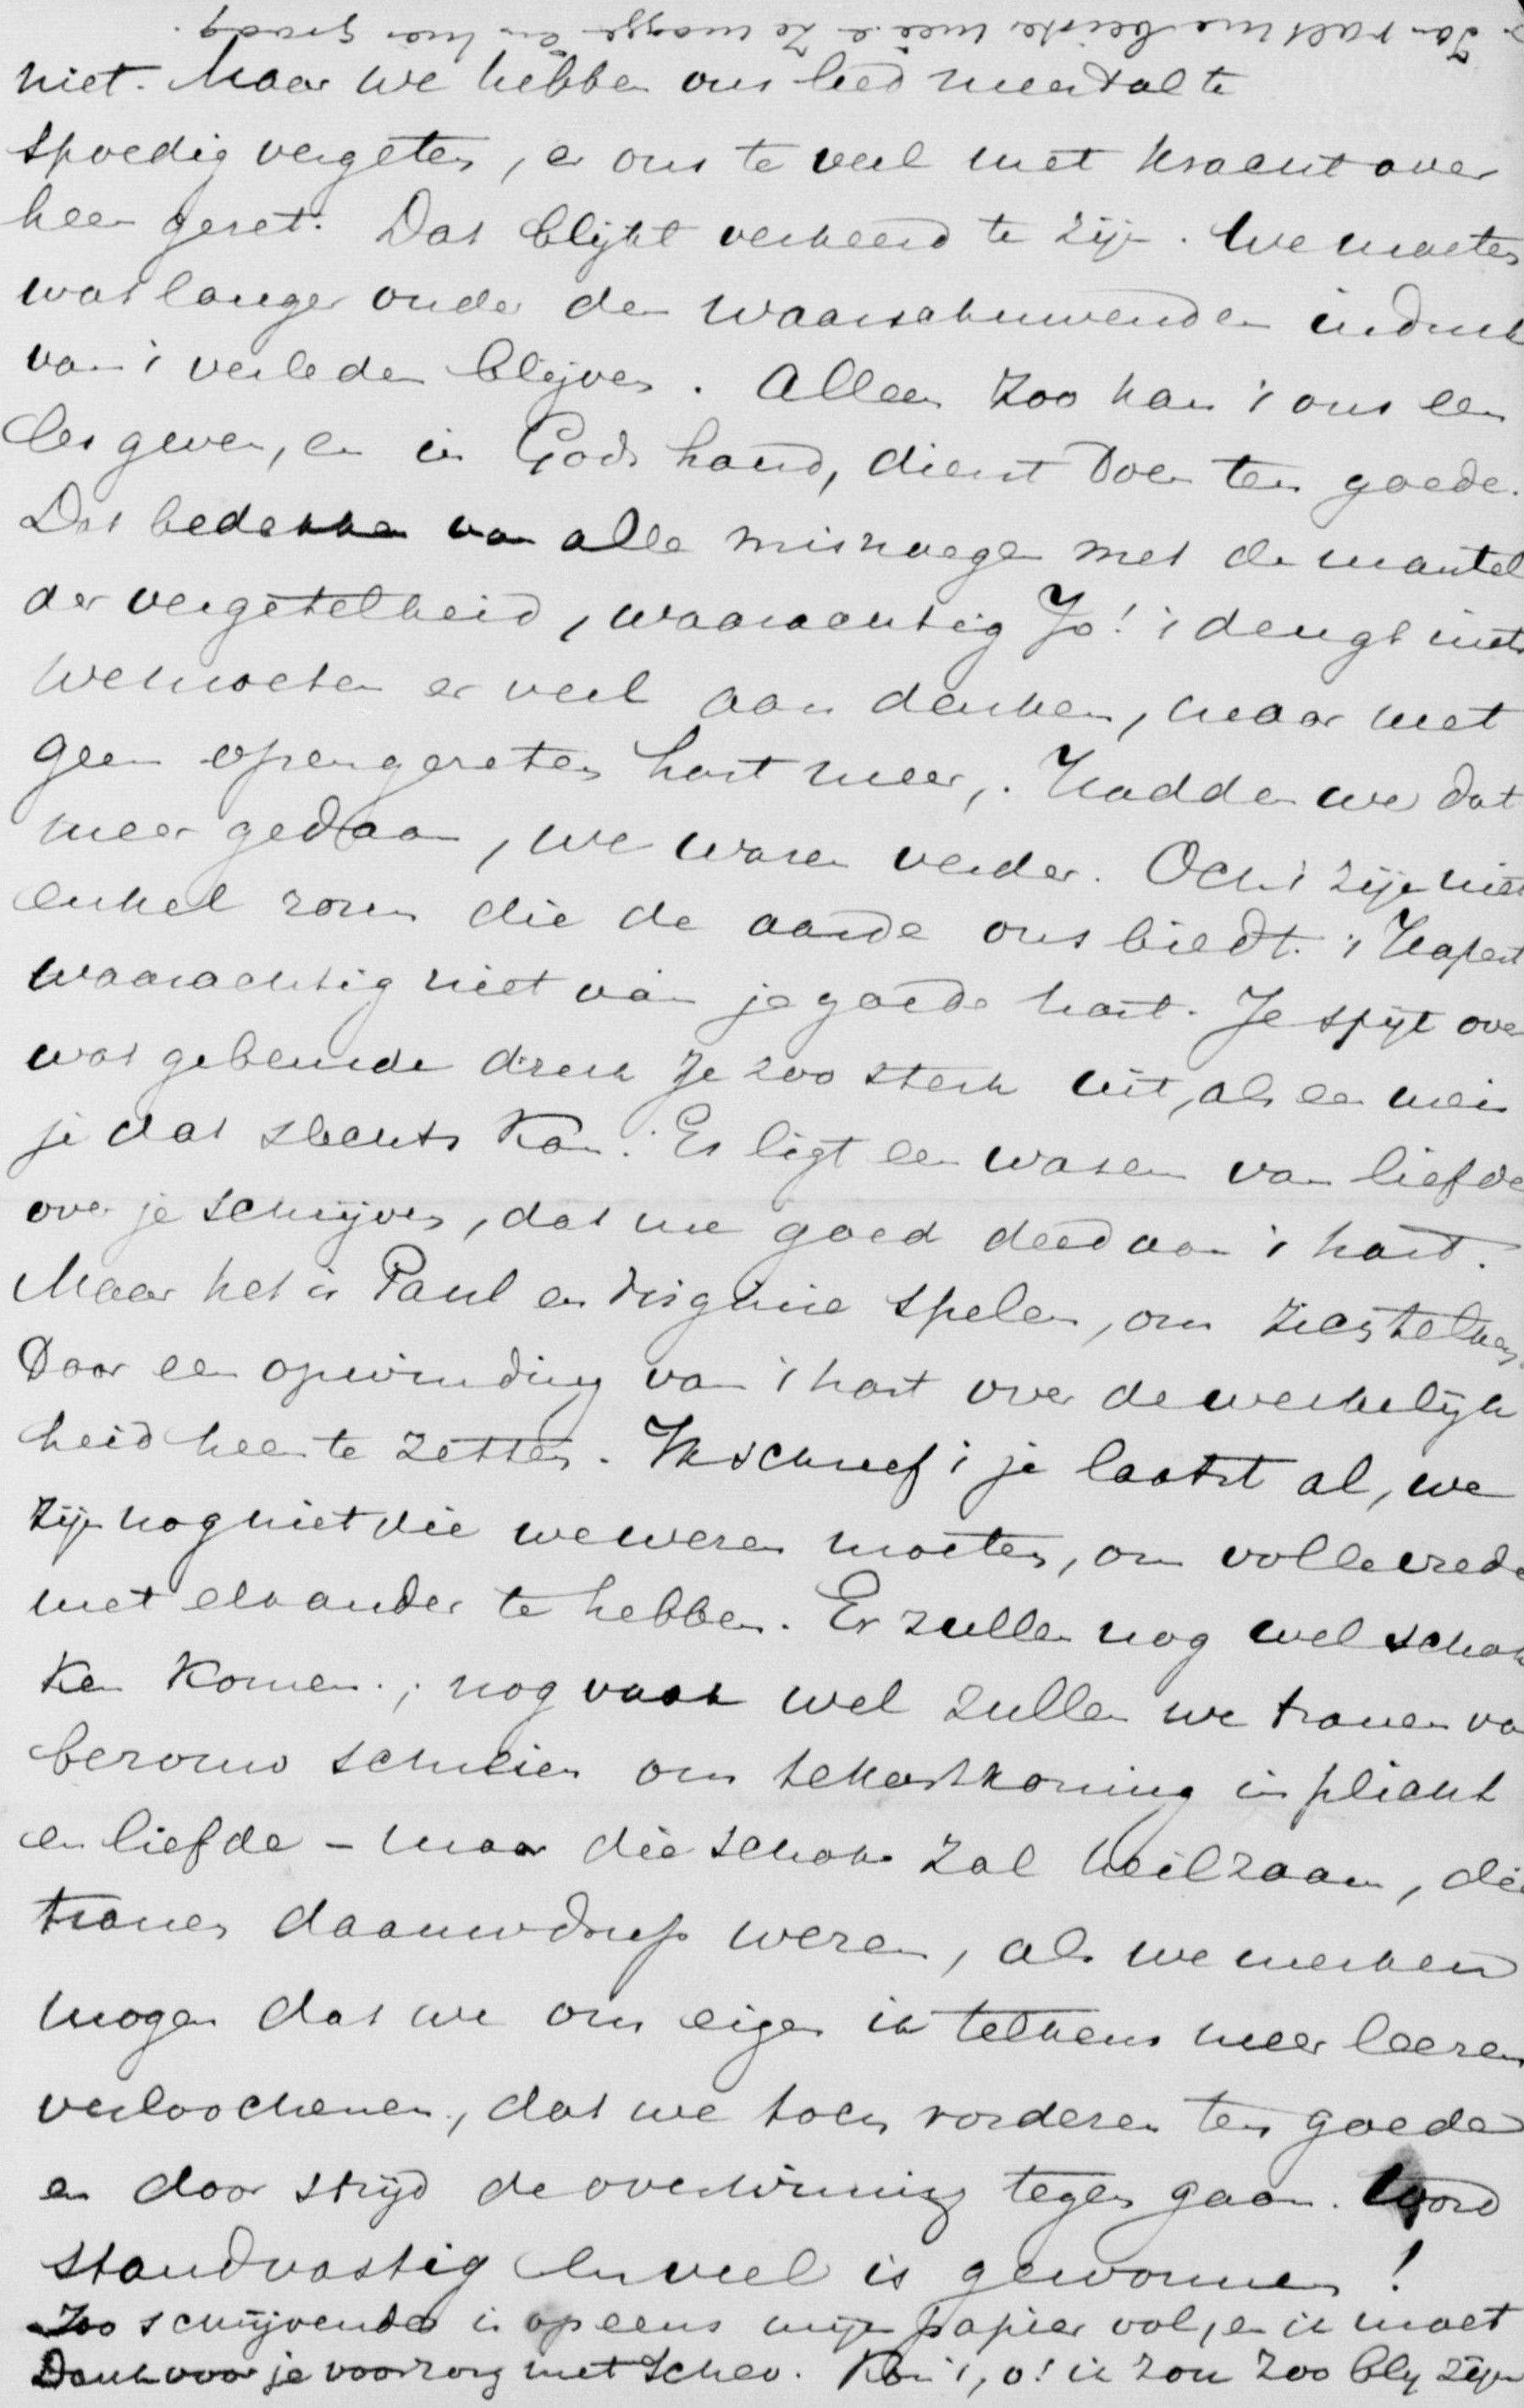 niet. Maar we hebben ons leed meestal te
spoedig vergeten, er ons te veel met kracht over
heen gezet. Dat blijkt verkeerd te zijn. We moeten
wat langer onder den waarschuwenden indruk
van 't verleden blijven. Alleen zoo kan 't ons een
les geven, en in Gods hand, dienst doen ten goede.
Dat bedekken van alle misnoegen met de mantel
der vergetelheid, waarachtig Jo! 't deugt niet
We moeten er veel aan denken, maar met
geen opengereten hart meer,. Hadden we dat
meer gedaan, we waren verder. Och 't zijn niet
enkel rozen die de aarde ons biedt. 't Hapert
waarachtig niet van je goede hart. Je spijt over
wat gebeurde druk je zoo sterk uit, als een meis
je dat slechts kan. Er ligt een wasem van liefde
over je schrijven, dat me goed deed aan 't hart.
Maar het is Paul en Virginie spelen, om zich telkens
Door een opwinding van 't hart over de werkelijk
heid heen te zetten. Ik schreef 't je laatst al, we
zijn nog niet die we wezen moeten, om volle vrede
met elkander te hebben. Er zullen nog wel schok
ken komen; nog vaak wel zullen we tranen va
berouw schreien om tekortkoming in plicht
en liefde - maar die schok zal heilzaam, die
tranen daauwdrup wezen, als we merken
mogen dat we ons eigen ik telkens meer leeren
verloochenen, dat we toch vorderen ten goede
en door strijd de overwinning tegen gaan. Word
standvastig en veel is gewonnen!
Zoo schrijvende is opeens mijn papier vol, en ik moet
Dank voor je voorzorg met Schev. Kon 't, o! ik zou zoo blij zijn